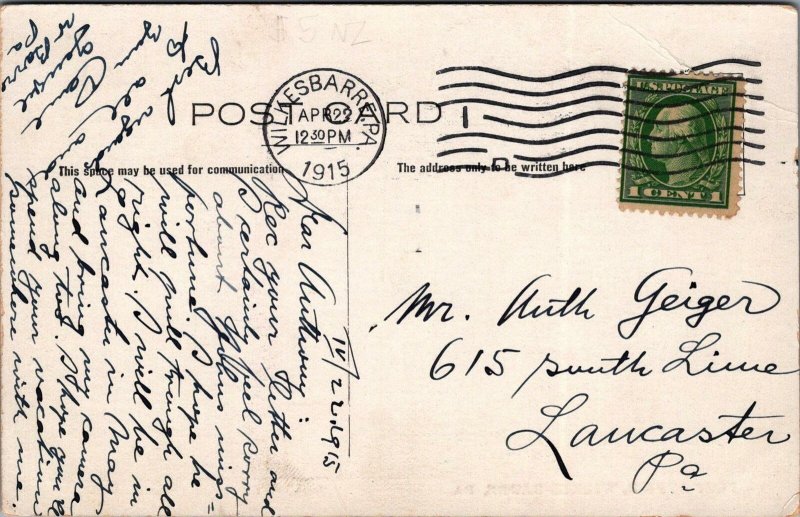 $5 NZ
POST CARD
WILKESBARRE, PA.
APR 22
12 30 PM
1915
U.S. POSTAGE
1 CENT 1
This space may be used for communication
The address only to be written here
IV/22.1915
Dear Anthony:
Rec your letter and
I certainly feel sorry
about
portune. I hope he
will pull through all
right. I will be in
Lancaster in May
and bring my camera
along too. I hope you'll
spend your vacation
some where with me.
Best
to
you all and
George
W Barre
Pa
Mr. Anth Geiger
615 South Lime
Lancaster
Pa